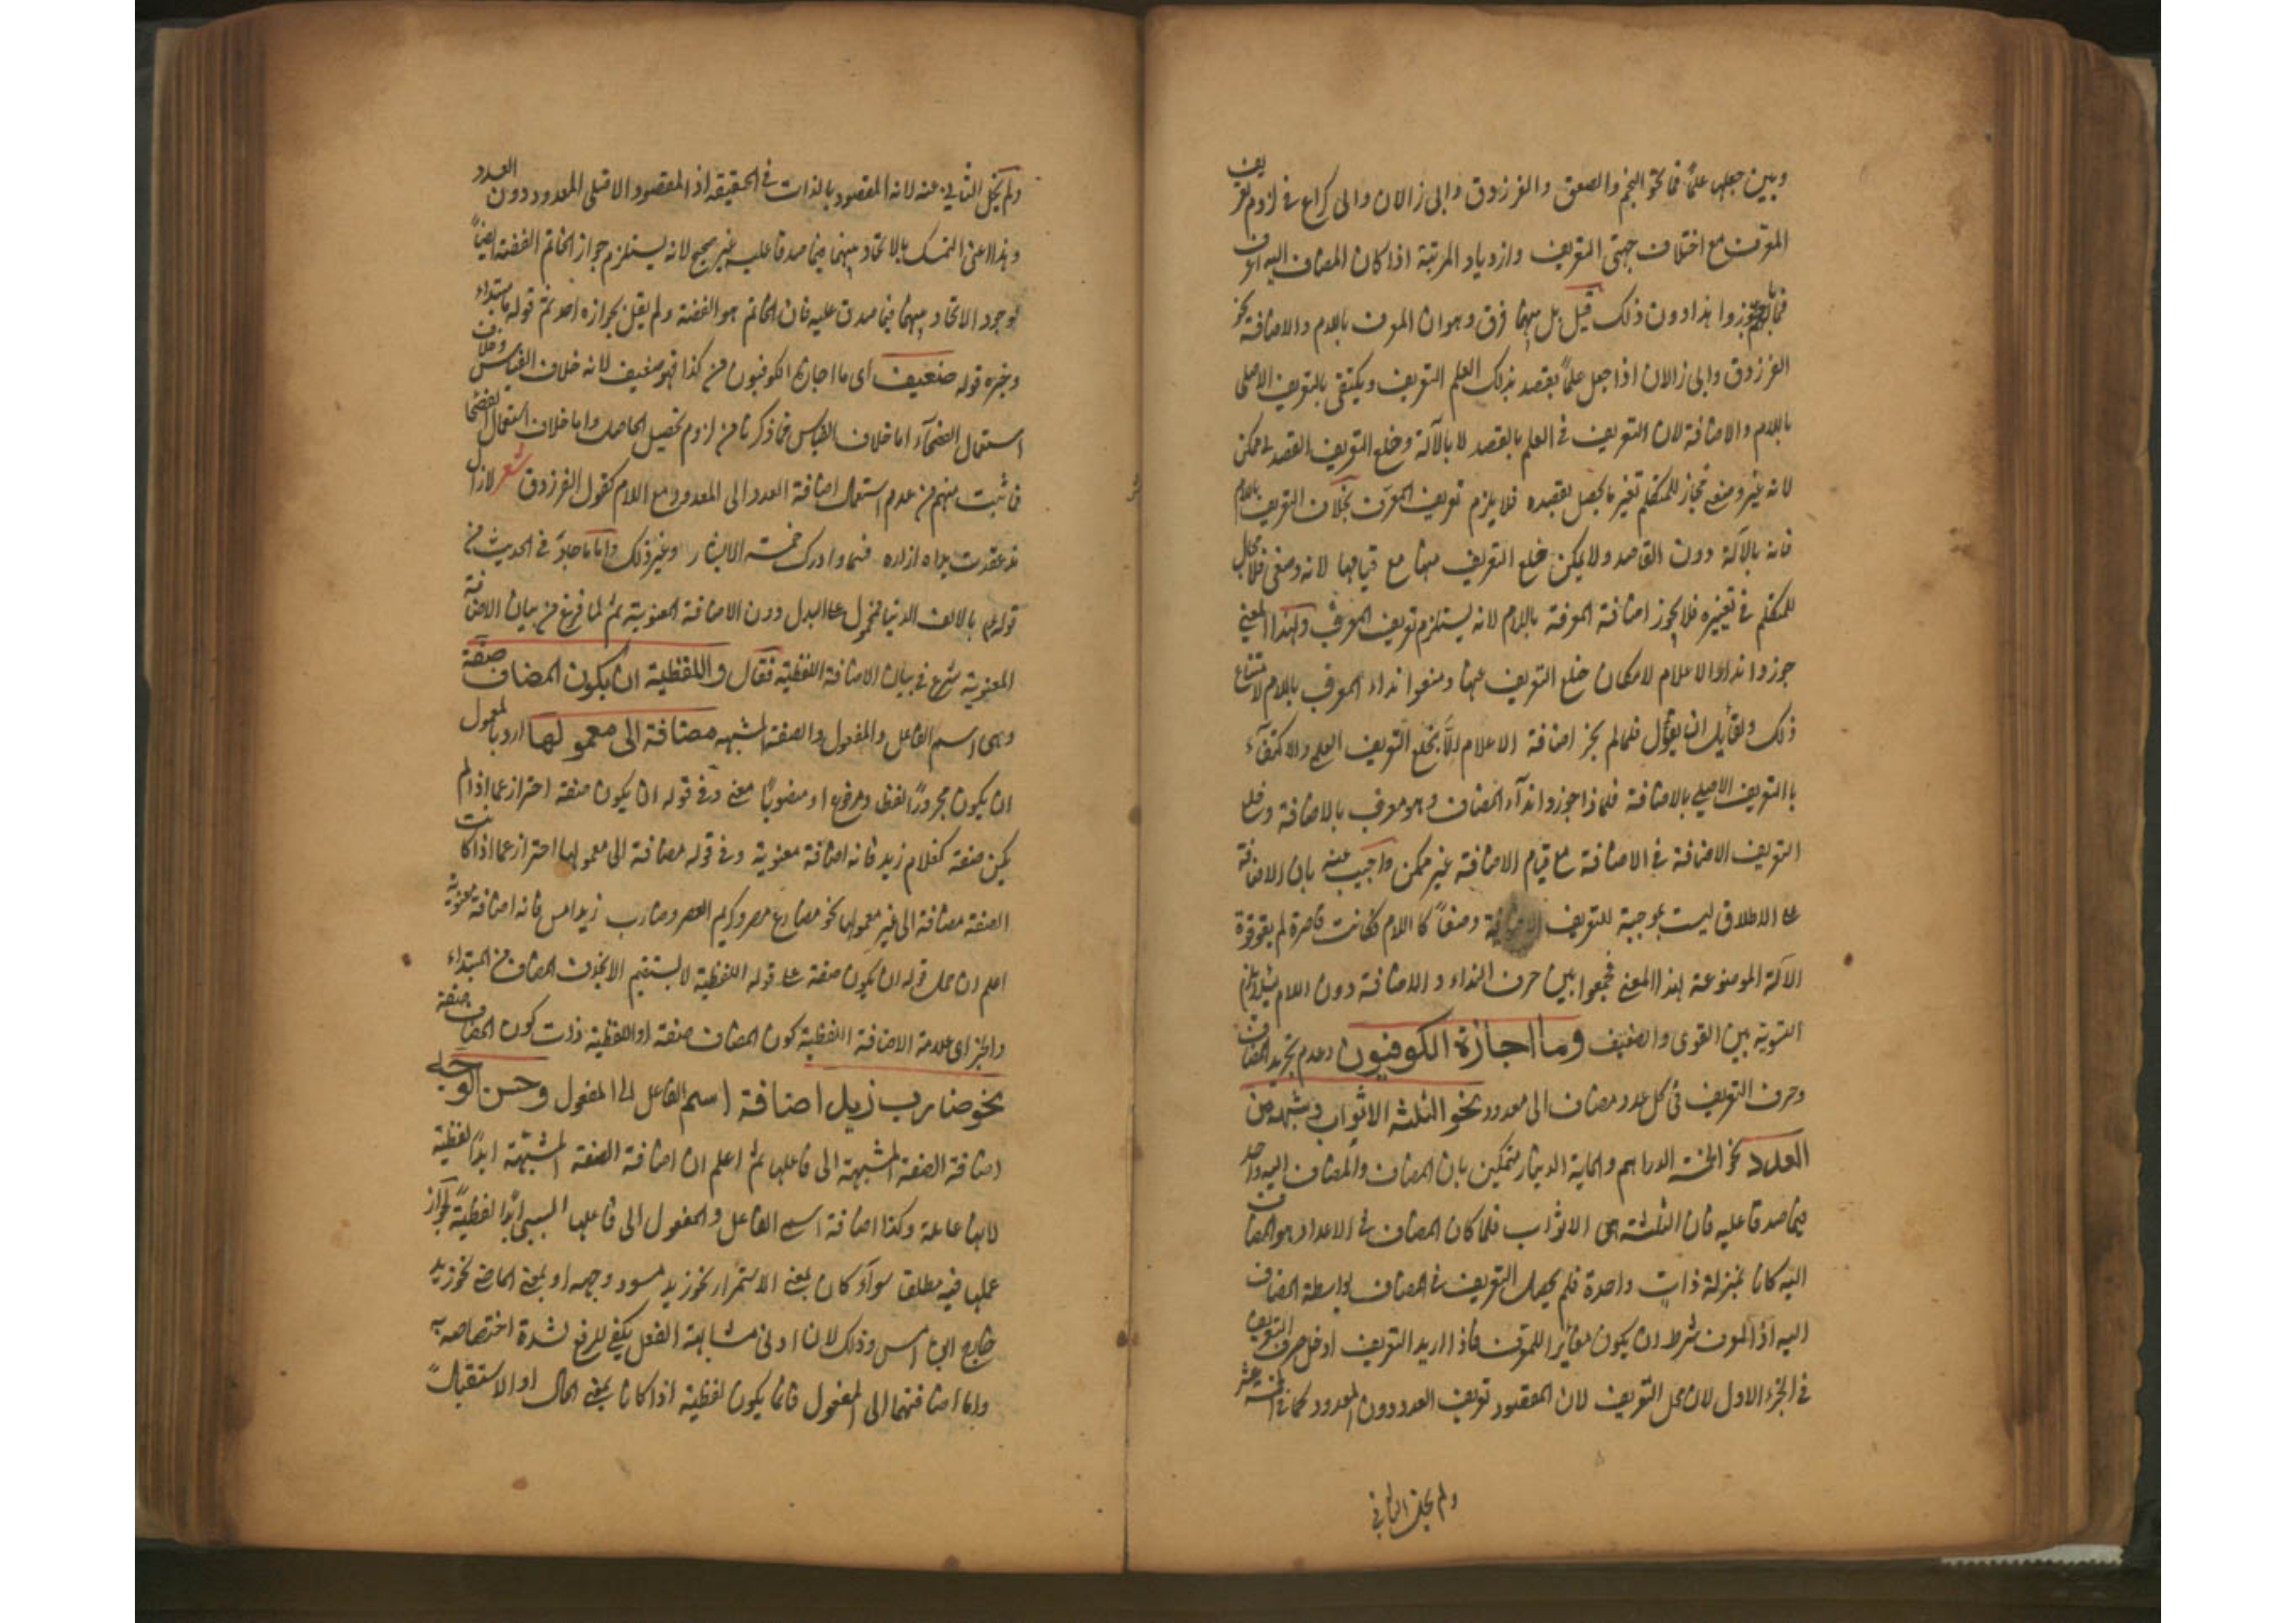 وبين جعلها علمًا فما نحو النجم والصعق والفرزدق وابي زالان والى كراع في لزوم تعريف
المعرف مع اختلاف جهتي التعريف وازدياد المرتبة اذا كان المضاف اليه اعرف
جوزوا هذا دون ذلك قيل بل بينهما فرق وهو ان المعرف باللام والاضافة نحو
الفرزدق وابي زالان اذا جعل علمًا يقصد بذلك العلم التعريف ويكتفى بالتعريف الاصلى
باللام والاضافة لان التعريف في العلم بالقصد لا بالآلة وخلع التعريف القصدي ممكن
لانه غير وضعي فجاز للمتكلم تغير ما يحصل بقصده فلا يلزم تعريف المعرف بخلاف التعريف باللام
فانه بالآلة دون القاصد ولا يمكن خلع التعريف منها مع قيامها لانه وضعى فلا مجال
للمتكلم في تغييره فلا يجوز اضافة المعرفة باللام لانه يستلزم تعريف المعرف ولهذا المعنى
جوزوا نداء الاعلام لامكان خلع التعريف عنها ومنعوا نداء المعرف باللام لامتناع
ذلك ولقايل ان يقول فلما لم يجز اضافة الاعلام الا بخلع التعريف العلمي والاكتفاء
باالتعريف الاصلي بالاضافة فلماذا جوزوا نداء المضاف وهو معرف بالاضافة وخلع
التعريف الاضافة في الاضافة مع قيام الاضافة غير ممكن واجيب عنه بان الاضافة
على الاطلاق ليست بموجبة للتعريف وضعًا كا اللام فكانت قاصرة لم يقو قوة
الآلة الموضوعة لهذا المعنى فجمعوا بين حرف النداء والاضافة دون اللام لئلا يلزم
التسوية بين القوى والضعيف وما اجازة الكوفيون وعدم تجريد المضاف
وحرف التعريف في كل عدد مضاف الى معدود نحو الثلثة الاثواب وشبهه من
العدد نحو الخمسة الدراهم والماية الدينار متمسكين بان المضاف والمضاف اليه واحد
فيما صدقا عليه فان الثلثة هى الاثواب فلما كان المضاف في الاعداد هو المضاف
اليه كانا بمنزلة ذات واحدة فلم يحصل التعريف في المضاف بواسطة المضاف
اليه اذ المعرف شرط ان يكون مغايرا للمعرف فاذا اريد التعريف ادخل حرف التعريف
في الجزء الاول لانه محل التعريف لان المقصود تعريف العدد دون المعدود كما في الخمسة عشر
ولم يخل الثاني
ولم يخل الثاني عنه لانه المقصود بالذات في الحقيقة اذ المقصود الاقتلى المعدود دون العدد
وهذا اعنى التمسك بالاتحاد بينهما فيما صدقا عليه غير صحيح لانه يستلزم جواز الخاتم الفضة ايضًا
لوجود الاتحاد بينهما فيما صدق عليه فان الخاتم هو الفضة ولم يقل بجوازه احد ثم قوله ما مبتداء
وخبره قوله ضعيف اى ما اجازه الكوفيون من كذا فهو ضعيف لانه خلاف القياس وخلاف
استعمال الفصحاء اما خلاف القياس فما ذكرنا من لزوم تحصيل الحاصل واما خلاف استعمال الفصحا
فما ثبت منهم من عدم استعمال اضافة العدد الى المعدود مع اللام كقول الفرزدق شعر لازال
مذ عقدت يداه ازاره فسما وادرك خمسة الاشبار وغير ذلك واما ما جاء في الحديث من
قوله عم بالالف الدينا فمحمول على البدل دون الاضافة المعنوية ثم لما فرغ من بيان الاضافة
المعنوية شرع في بيان الاضافة اللفظية فقال واللفظية ان يكون المضاف صفة
وهى اسم الفاعل والمفعول والصفة المشبهه مضافة الى معمولها اراد بالمعمول
ان يكون مجرورًا لفظا ومرفوعا او منصوبًا معنى وفي قوله ان يكون صفة احتراز عما اذا لم
يكن صفة كغلام زيد فانه اضافة معنوية وفي قوله مضافة الى معمولها احتراز عما اذا كانت
الصفة مضافة الى غير معمولها نحو مصارع مصر وكريم العصر وضارب زيد امس فانه اضافة معنوية
اعلم ان حمل قوله ان يكون صفة على قوله اللفظية لا يستقيم الا بحذف المضاف من المبتداء
والخبر اى علامة الاضافة اللفظية كون المضاف صفة او اللفظية ذات كون المضاف صفة
نحو ضارب زيد اضافة اسم الفاعل الى المفعول وحسن الوجه
اضافة الصفة المشبهة الى فاعلها ثم اعلم ان اضافة الصفة المشبهة ابدًا لفظية
لانها عاملة وكذا اضافة اسم الفاعل والمفعول الى فاعلها السببي ابدًا لفظية لجواز
عملها فيه مطلقا سواء كان بمعنى الاستمرار نحو زيد مسود وجهه او بمعنى الماضى نحو زيد
ضارب ابن امس وذلك لان ادنى مشابهة الفعل يكفى للرفع لشدة اختصاصه به
واما اضافتهما الى المفعول فانما يكون لفظية اذا كانا بمعنى الحال او الاستقبال